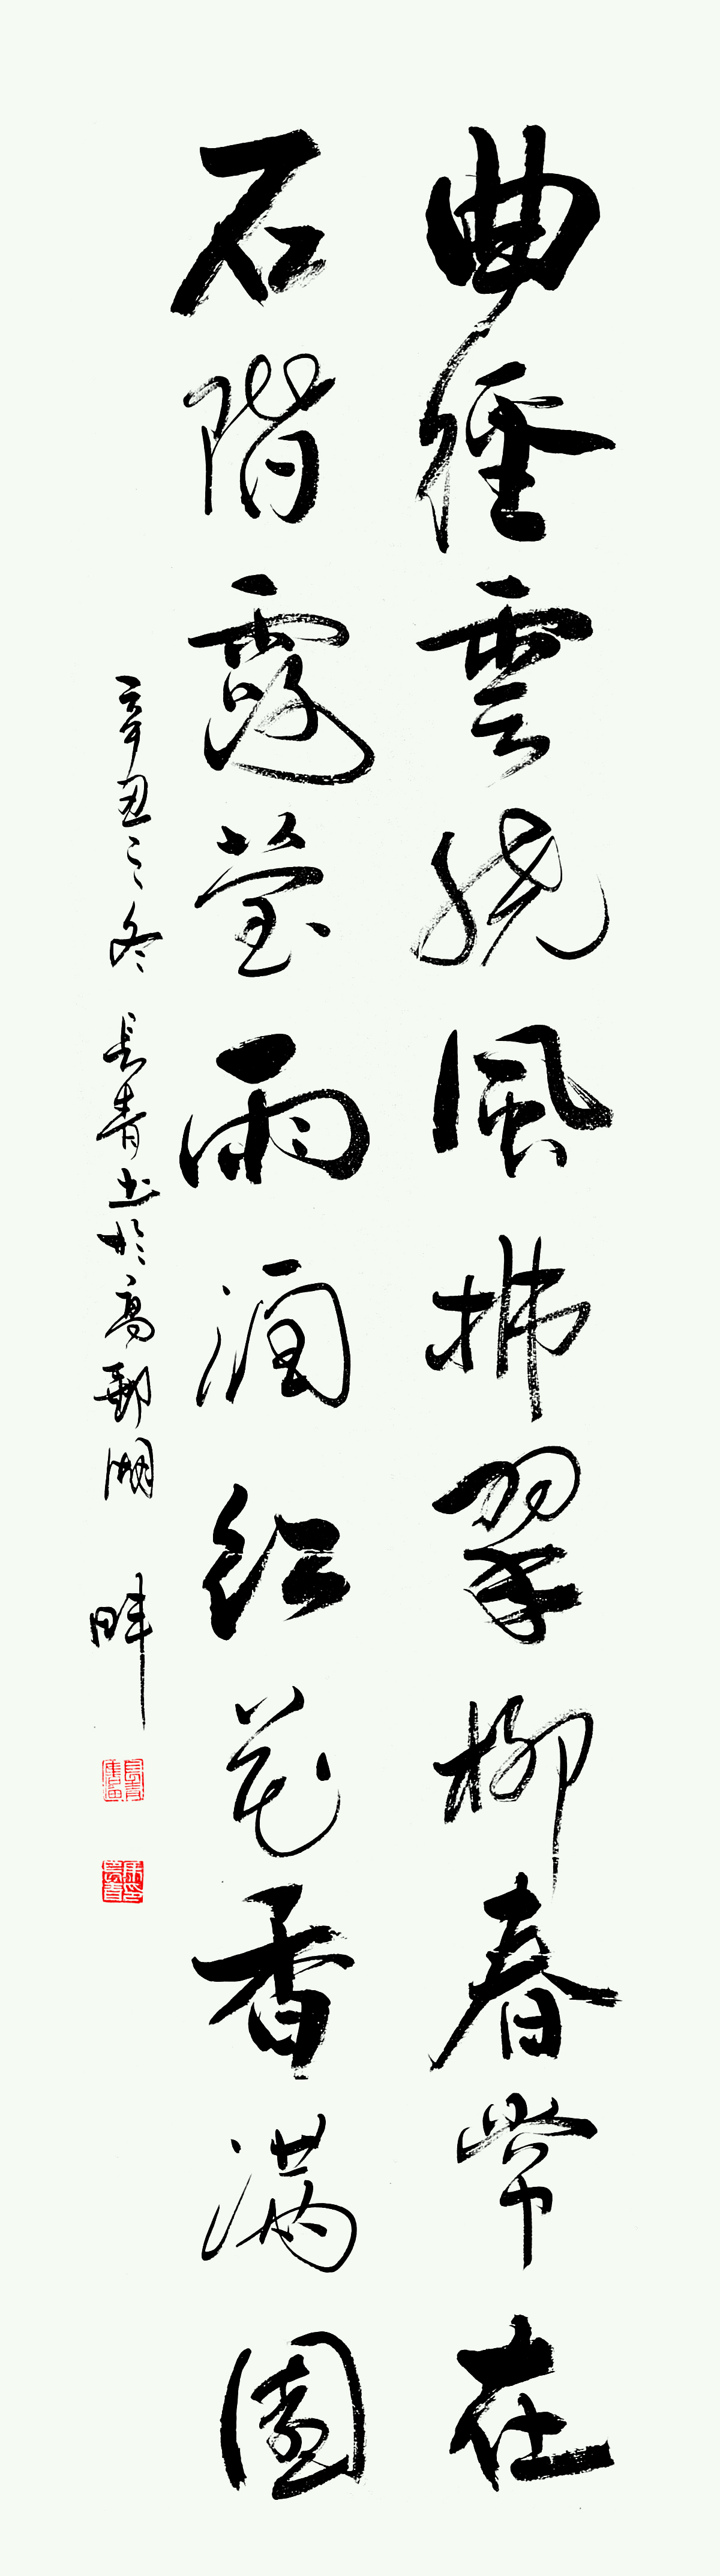 曲徑雲繞風拂翠柳春常在
石階露瑩雨潤红花香满園
辛丑之冬 長青书於高郵湖畔